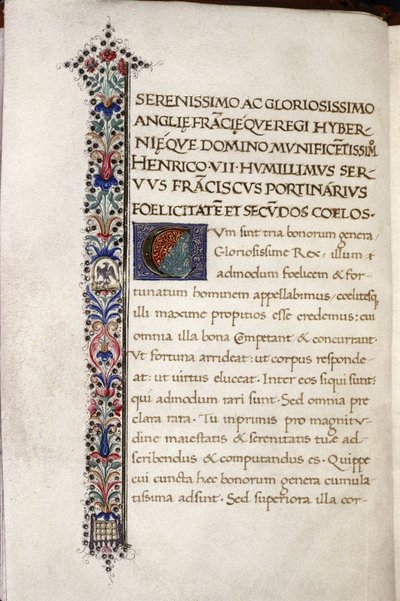 SERENISSIMO AC GLORIOSISSIMO
ANGLIĘ FRÃCIĘ QVE REGI HYBER-
NIĘ QVE DOMINO MVNIFICẼTISSIM̃
HENRICO · VII · HVMILLIMVS SER
VVS FRÃCISCVS PORTINÁRIVS
FOELICITATẼ ET SECṼDOS COELOS ·
CVm sint tria bonorum genera /
Gloriosissime Rex / illum &
admodum foelicem & for-
tunatum hominem appellabimus / coelitesq;
illi maxime propitios esse credemus : cui
omnia illa bona Competant / & concurrant.
Vt fortuna arrideat : ut corpus responde-
at : ut uirtus eluceat . Inter eos siqui sunt :
qui admodum rari sunt . Sed omnia pre
clara rara . Tu inprimis pro magnitv-
dine maiestatis & serenitatis tuę ad-
scribendus & computandus es . Quippe
cui cuncta hęc bonorum genera cumula
tissima adsint . Sed superiora illa cor-